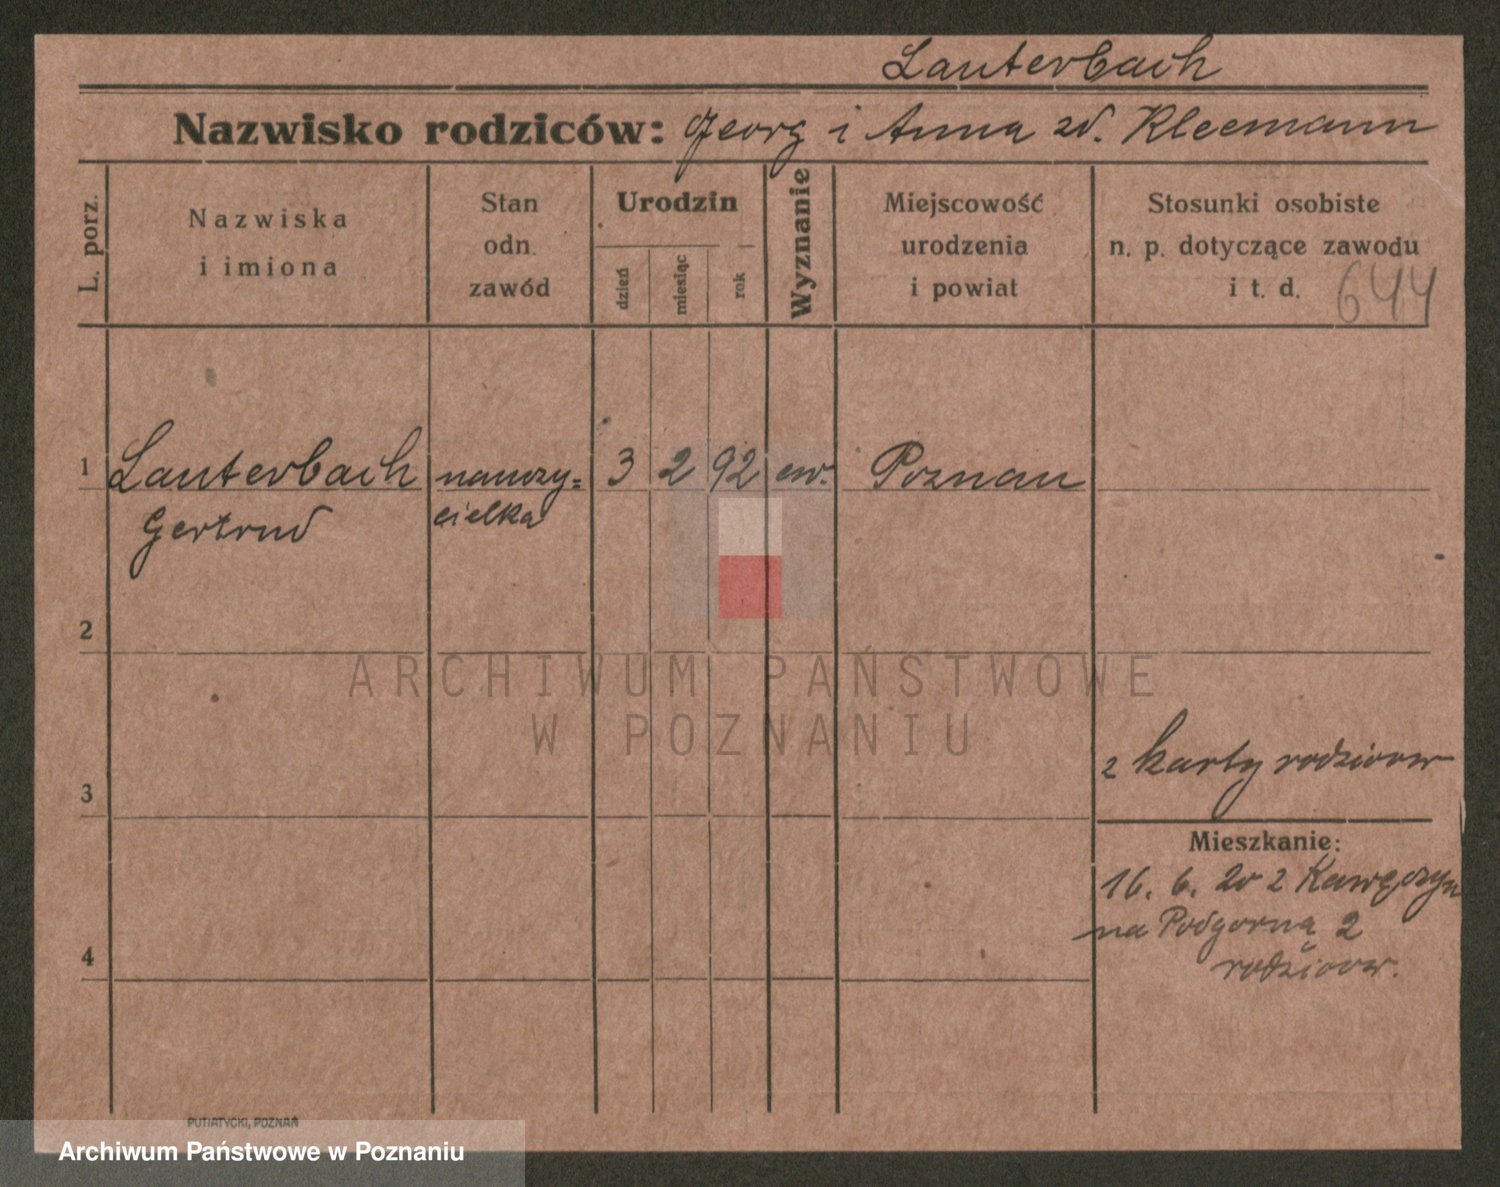 Lauterbach
Nazwisko rodziców: Georg i Anna zd. Kleemann
L. porz.
Nazwiska
i imiona
Stan
odn.
zawód
Urodzin
dzień
miesiąc
rok
Wyznanie
Miejscowość
urodzenia
i powiat
Stosunki osobiste
n. p. dotyczące zawodu
i t. d.
644
1 Lauterbach nauczy= 3 2 92 ew. Poznań
Gertrud cielka
2
3
z karty rodziców
Mieszkanie:
16. 6. 20 z Kawęczyn
na Podgorną 2
rodziców.
4
ARCHIWUM PAŃSTWOWE
W POZNANIU
PUTIATYCKI, POZNAŃ
Archiwum Państwowe w Poznaniu